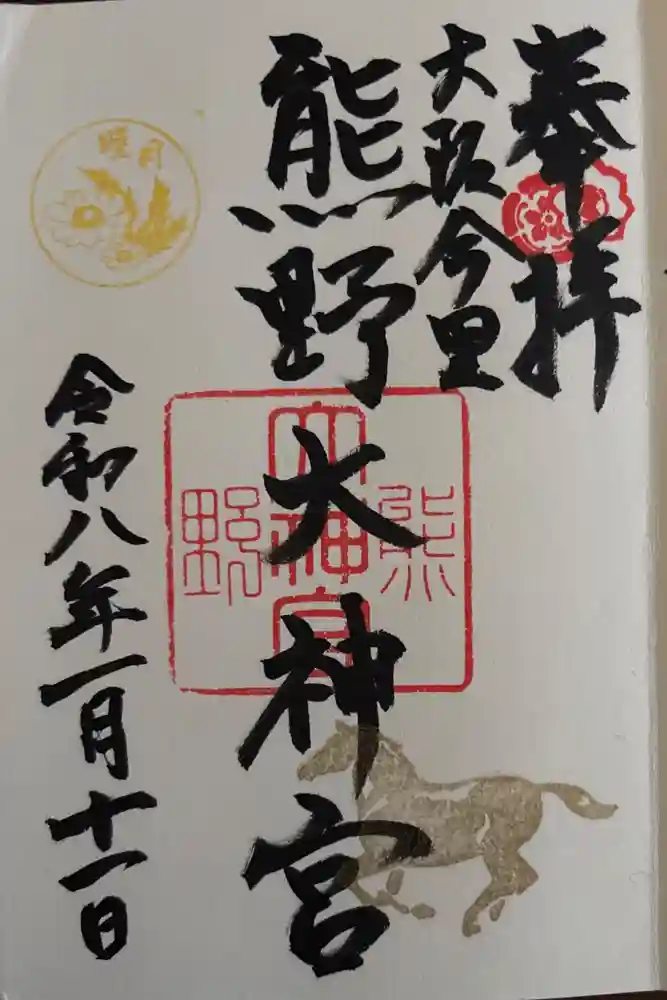 奉拝
大阪今里
熊野大神宮
熊
大神宮
野
睦月
令和八年一月十一日